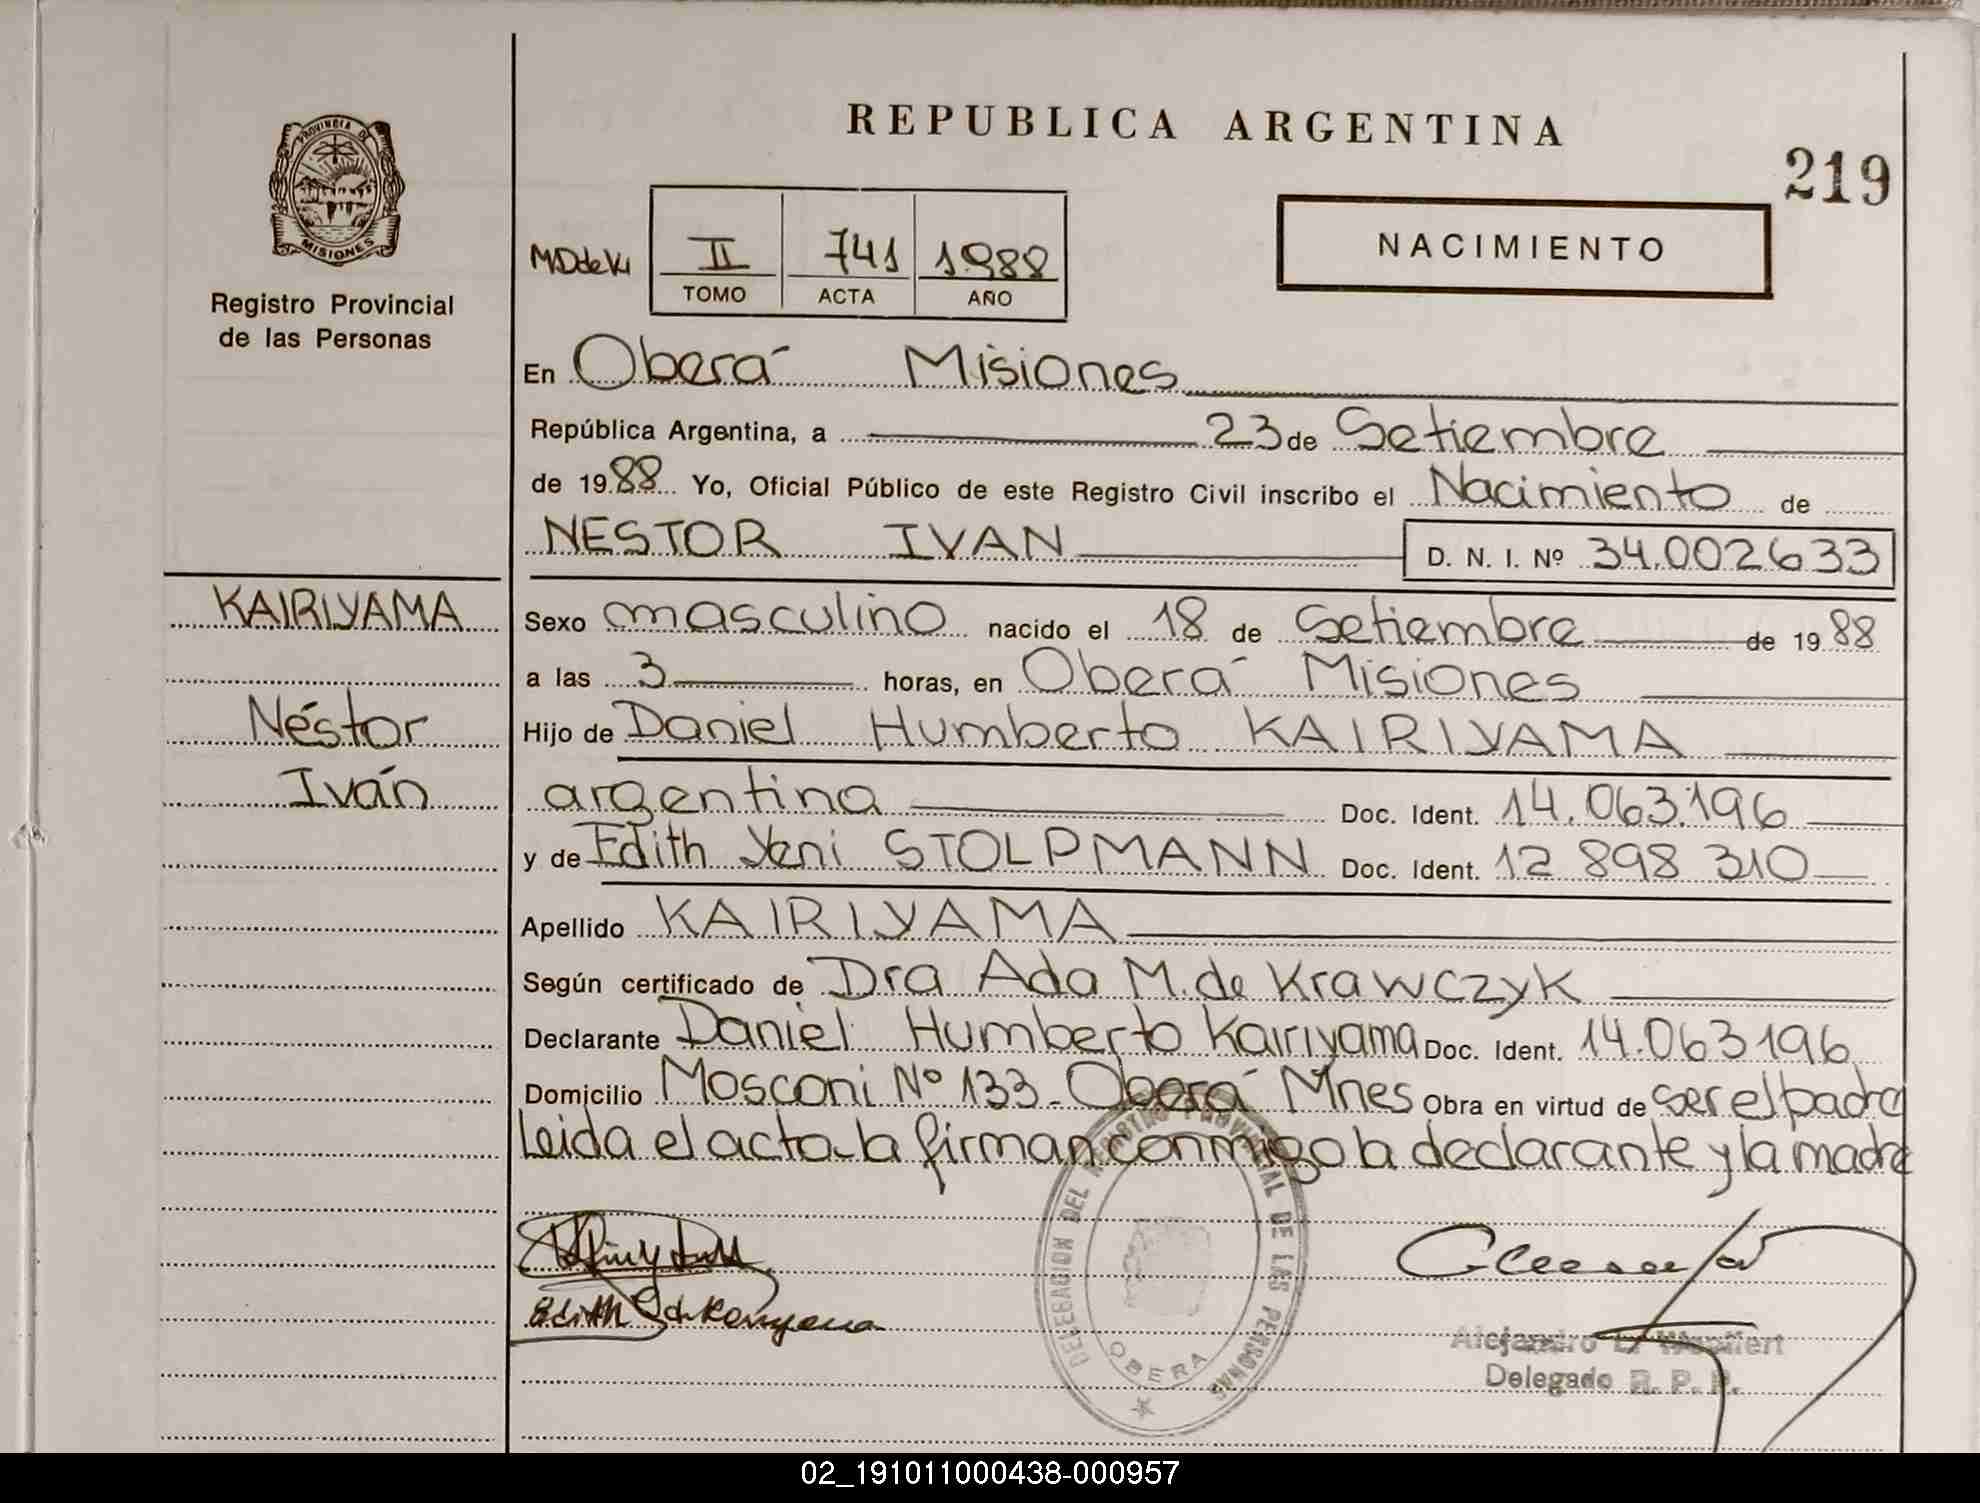 PROVINCIA DE
MISIONES
Registro Provincial
de las Personas
KAIRIYAMA
Néstor
Iván
REPUBLICA ARGENTINA
219
NACIMIENTO
II 741 1988
TOMO ACTA AÑO
En Oberá Misiones
República Argentina, a 23 de Setiembre
de 1988 Yo, Oficial Público de este Registro Civil inscribo el Nacimiento de
NESTOR IVAN D. N. I. Nº 34.002633
Sexo masculino nacido el 18 de Setiembre de 1988
a las 3 horas, en Oberá Misiones
Hijo de Daniel Humberto KAIRIYAMA
argentina Doc. Ident. 14.063.196
y de Edith Yeni STOLPMANN Doc. Ident. 12 898 310
Apellido KAIRIYAMA
Según certificado de Dra Ada M. de Krawczyk
Declarante Daniel Humberto Kairiyama Doc. Ident. 14.063196
Domicilio Mosconi Nº 133 - Oberá Mnes Obra en virtud de ser el padre
Leida el acta la firman conmigo la declarante y la madre
DELEGACION DEL REGISTRO PROVINCIAL DE LAS PERSONAS
OBERA
Alejandro
Delegado R. P. P.
02_191011000438-000957